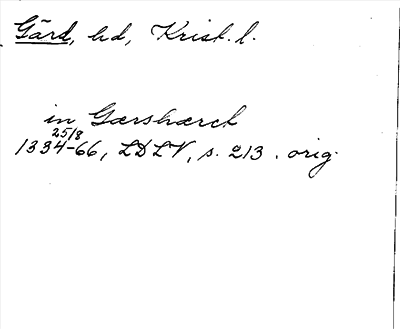 Gärd, hd, Krist. l.
in Gærshæreth
25/8
1334-66, LDLV, s. 213. orig.